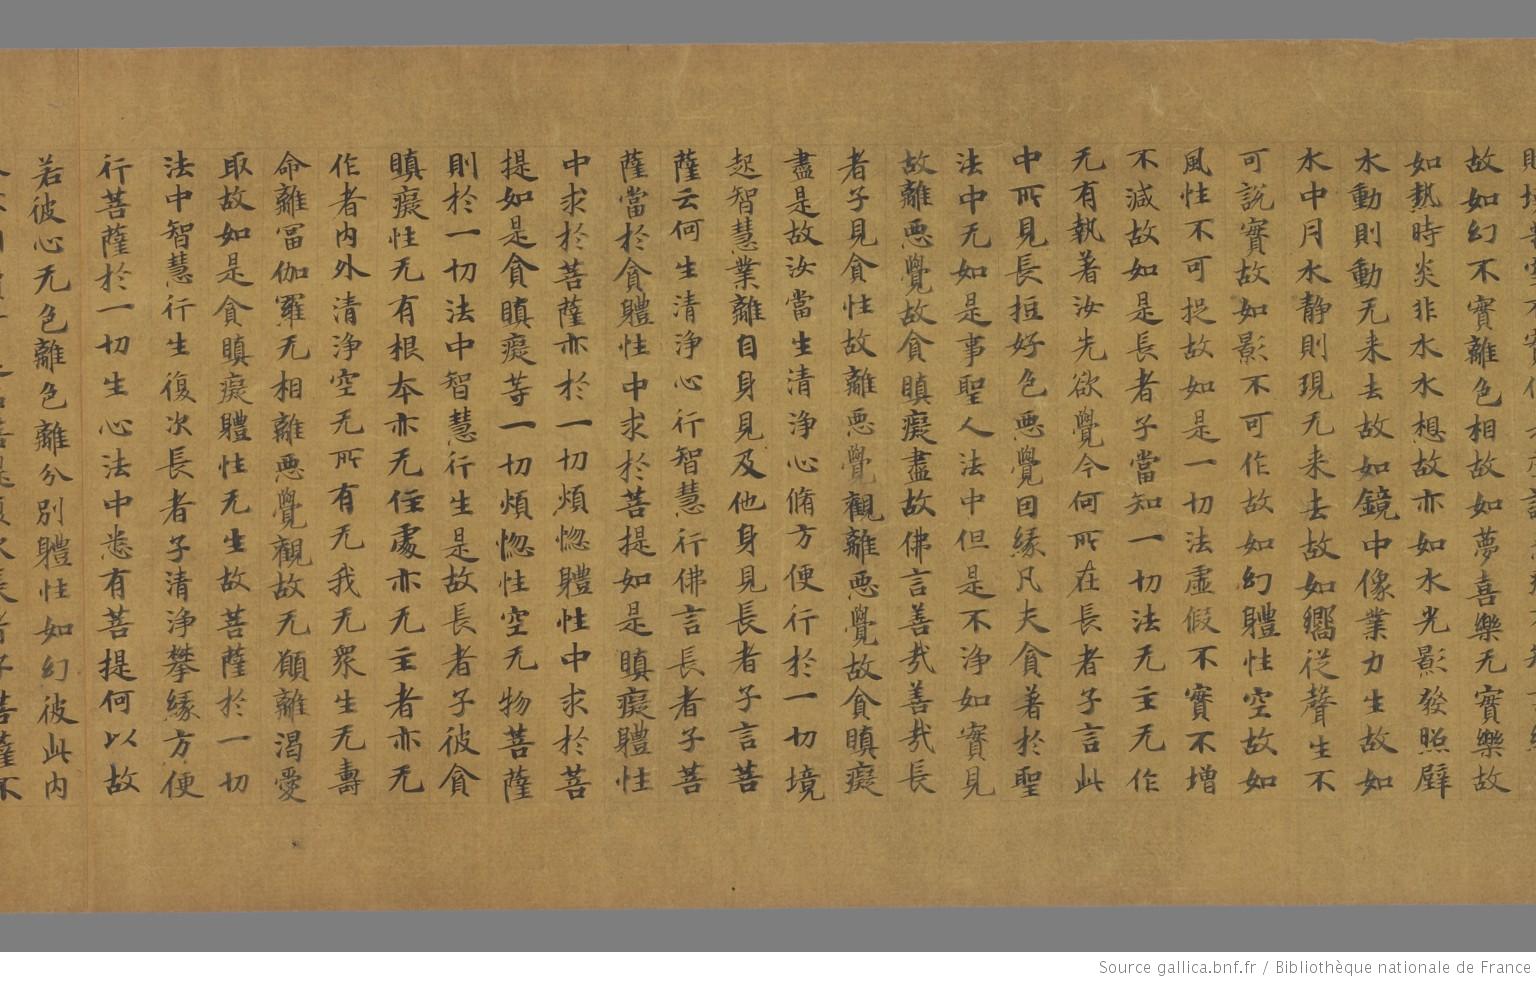 故如幻不實離色相故如夢喜樂无實樂故
如熱時炎非水水想故亦如水光影發照壁
水動則動无来去故如鏡中像業力生故如
水中月水静則現无来去故如嚮從聲生不
可說實故如影不可作故如幻體性空故如
風性不可捉故如是一切法虛假不實不增
不減故如是長者子當知一切法无主无作
无有執著汝先欲覺今何所在長者子言此
中所見長短好色惡覺因緣凡夫貪著於聖
法中无如是事聖人法中但是不淨如實見
故離惡覺故貪瞋癡盡故佛言善哉善哉長
者子見貪性故離惡覺觀離惡覺故貪瞋癡
盡是故汝當生清淨心脩方便行於一切境
起智慧業離自身見及他身見長者子言菩
薩云何生清淨心行智慧行佛言長者子菩
薩當於貪體性中求於菩提如是瞋癡體性
中求於菩薩亦於一切煩惚體性中求於菩
提如是貪瞋癡等一切煩惚性空无物菩薩
則於一切法中智慧行生是故長者子彼貪
瞋癡性无有根本亦无住處亦无主者亦无
作者内外清淨空无所有无我无衆生无壽
命離冨伽羅无相離惡覺觀故无願離渴愛
取故如是貪瞋癡體性无生故菩薩於一切
法中智慧行生復次長者子清淨攀緣方便
行菩薩於一切生心法中悉有菩提何以故
若彼心无色離色離分別體性如幻彼此内
Source gallica.bnf.fr / Bibliothèque nationale de France